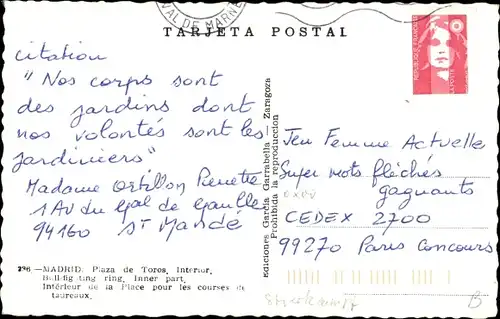 VAL DE MARNE
TARJETA POSTAL
REPUBLIQUE FRANÇAISE
LA POSTE
citation
"Nos corps sont
des jardins dont
nos volontés sont les
jardiniers"
Madame Ortillon Pierrette
1 AV du Gal de Gaulle
94160 St Mandé
236 — MADRID. Plaza de Toros, Interior.
Bullfighting ring. Inner part
Intérieur de la Place pour les courses de
taureaux.
Ediciones García Garrabella — Zaragoza
Prohibida la reproduccion
Jeu Femme Actuelle
Super mots fléchés
gagnants
CEDEX 2700
99270 Paris Concours
B